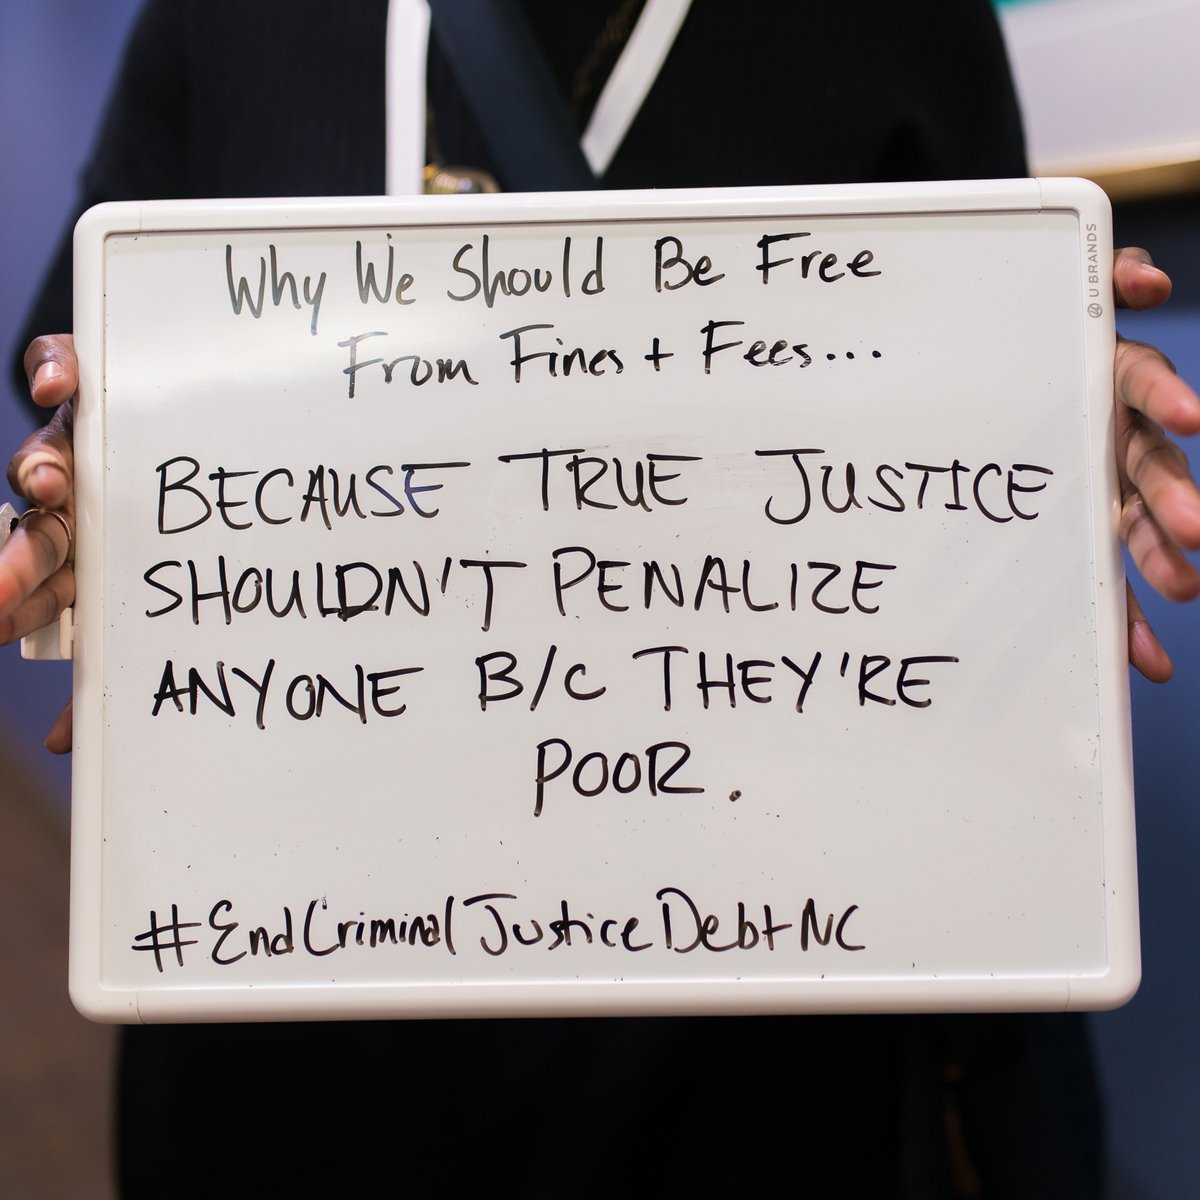 Why We Should Be Free
From Fines + Fees...
BECAUSE TRUE JUSTICE
SHOULDN'T PENALIZE
ANYONE B/C THEY'RE
POOR.
#EndCriminalJusticeDebtNC
U BRANDS